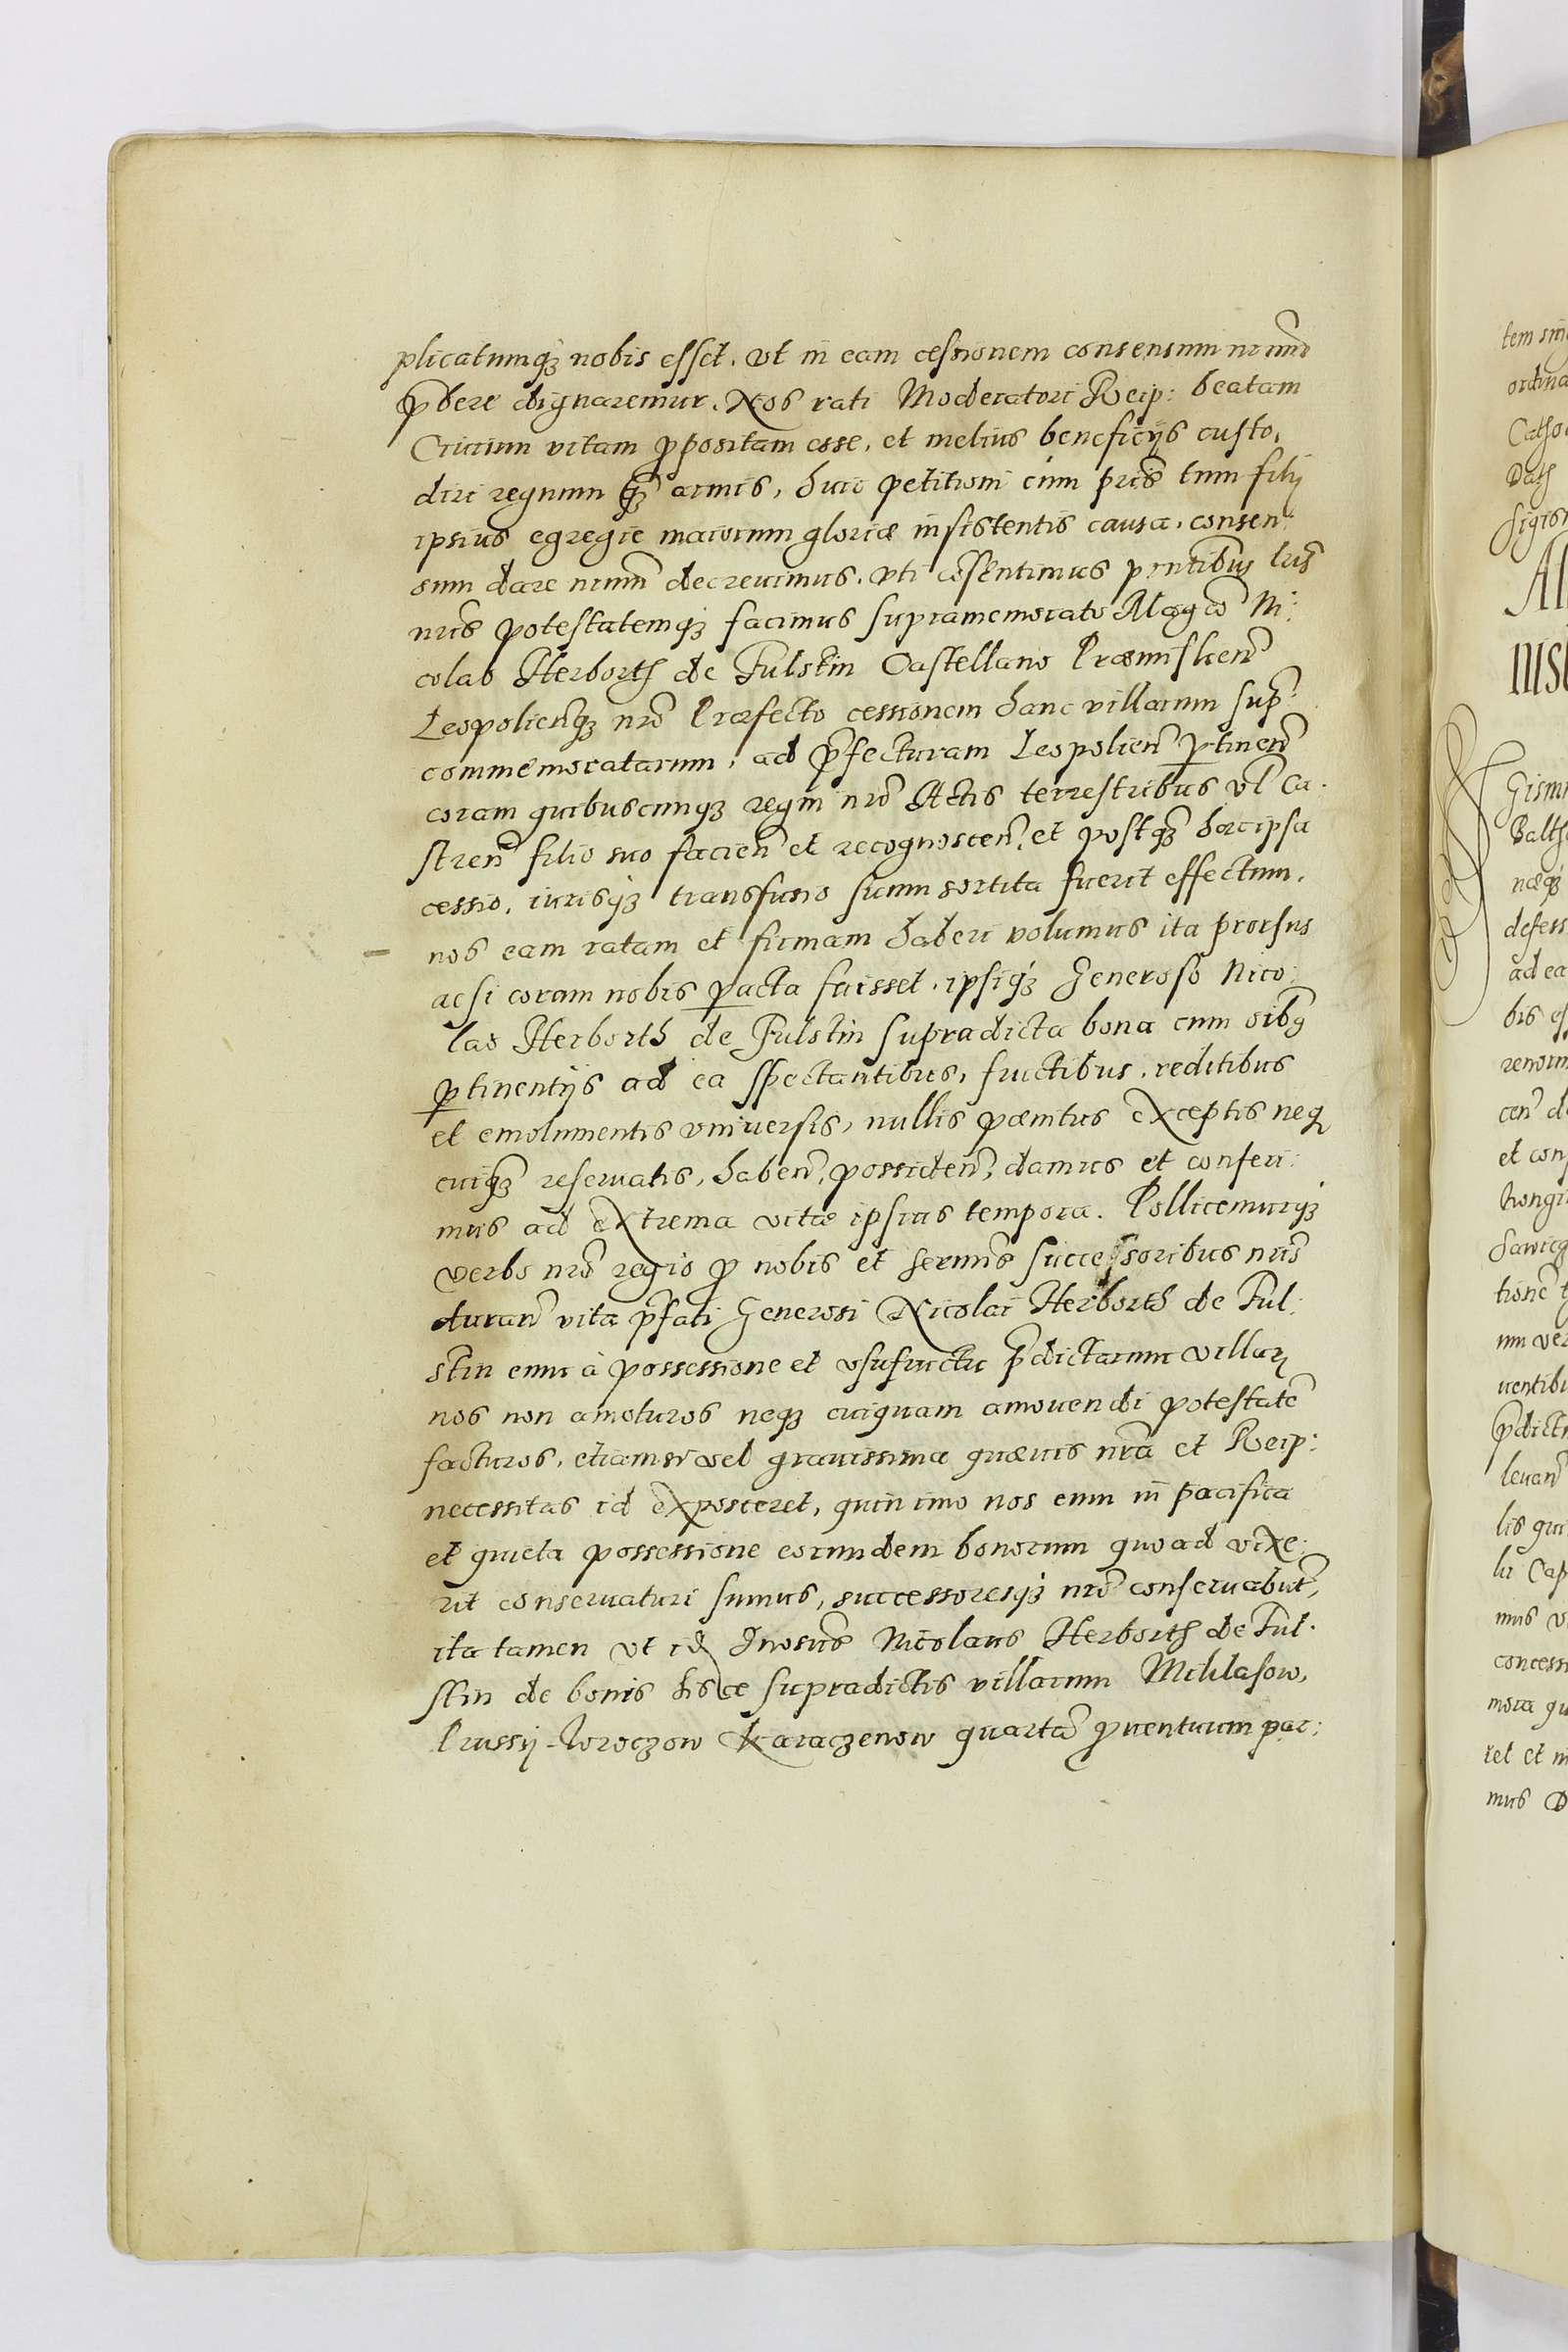 plicatumq₃ nobis esset. vt in eam cessionem consensum nrm̃
p̃bere dignaremur. Nos rati Moderatori Reip: beatam
Ciuium vitam ꝓpositam esse, et melius beneficijs custo,
diri regnum q̃₃ armis, huic petitioni cùm pr̃is tum filij
ipsius egregie maiorum gloriæ insistentis causa, consen:
sum dare nrum̃ decreuimus. vti cõsentimus pr̃ntibus lr̃is
nr̃is potestatemq₃ facimus supramemorato Mag̃co Ni:
colao Herborth de Fulstin Castellano Præmislien̄
Leopolienq₃ nrõ Præfecto cessionem hanc villarum sup̃:
commemoratarum, ad p̃fecturam Leopolien̄ ꝑtinen̄
coram quibuscunq₃ regni nrĩ Actis terrestribus vl̃ Ca.
stren̄ filio suo facien̄ et recognoscen̄, et postq̃₃ hæc ipsa
cessio, iurisq₃ transfusio suum sortita fuerit effectum,
nos eam ratam et firmam haberi volumus ita prorsus
ac si coram nobis ꝑacta fuisset, ipsiq₃ Generoso Nico:
lao Herborth de Fulstin supradicta bona cum oĩbꝰ
ꝑtinentijs ad ea spectantibus, fructibus, reditibus
et emolumentis vniuersis, nullis pænitus exceptis neq₃
cuiq̃₃ reseruatis, haben̄, possiden̄, damus et conferi:
mus ad extrema vitæ ipsius tempora. Pollicemurq₃
verbo nrõ regio ꝓ nobis et sermis̃ successoribus nr̃is
duran̄ vita p̃fati Generosi Nicolai Herborth de Ful:
stin eum à possessione et vsufructu p̃dictarum villarꝝ
nos non amoturos neq₃ cuiquam amouendi potestatẽ
facturos, etiamsi vel grauissima quæuis nrã et Reip:
necessitas id exposceret, quin imo nos eum in pacifica
et quieta possessione eorundem bonorum quoad vixe:
rit conseruaturi sumus, successoresq₃ nrĩ conseruabũt,
ita tamen vt id Gñosus Nicolaus Herborth de Ful.
stin de bonis hisce supradictis villarum Miklasow,
Prussij Woroczow Karaczenow quartã ꝓuentuum par: